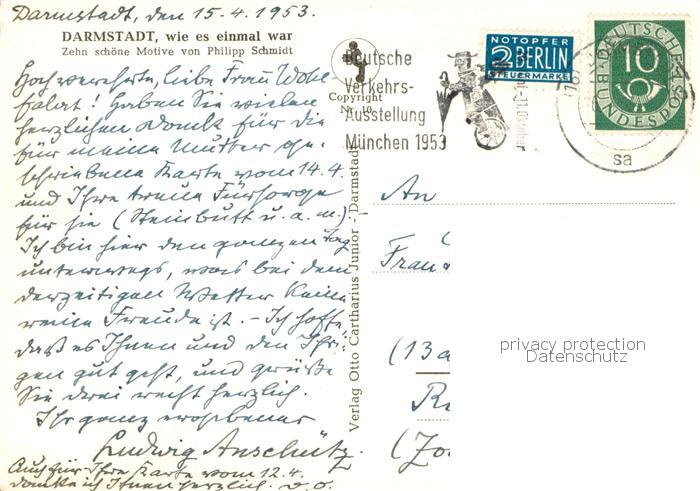 Darmstadt, den 15.4.1953.
DARMSTADT, wie es einmal war
Zehn schöne Motive von Philipp Schmidt
Hochverehrte, liebe Frau Wohl-
fahrt! Haben Sie vielen
herzlichen Dank für die
für meine Mutter ge-
schriebene Karte vom 14.4.
und Ihre treue Fürsorge
für sie (Steinbutt u.a.m.)
Ich bin hier den ganzen Tag
unterwegs, was bei dem
derzeitigen Wetter keine
reine Freude ist. – Ich hoffe,
daß es Ihnen und den Ihri-
gen gut geht, und grüße
Sie derei recht herzlich.
Ihr ganz ergebener
Ludwig Anschütz.
Auch für Ihre Karte vom 12.4.
danke ich Ihnen herzlich. D.O.
Copyright
Nr. 10
Verlag Otto Cartharius Junior - Darmstadt
Deutsche
Verkehrs-
Ausstellung
München 1953
NOTOPFER
2 BERLIN
STEUERMARKE
DEUTSCHE
BUNDESPOST
10
sa
An
Frau
(13a
privacy protection
Datenschutz